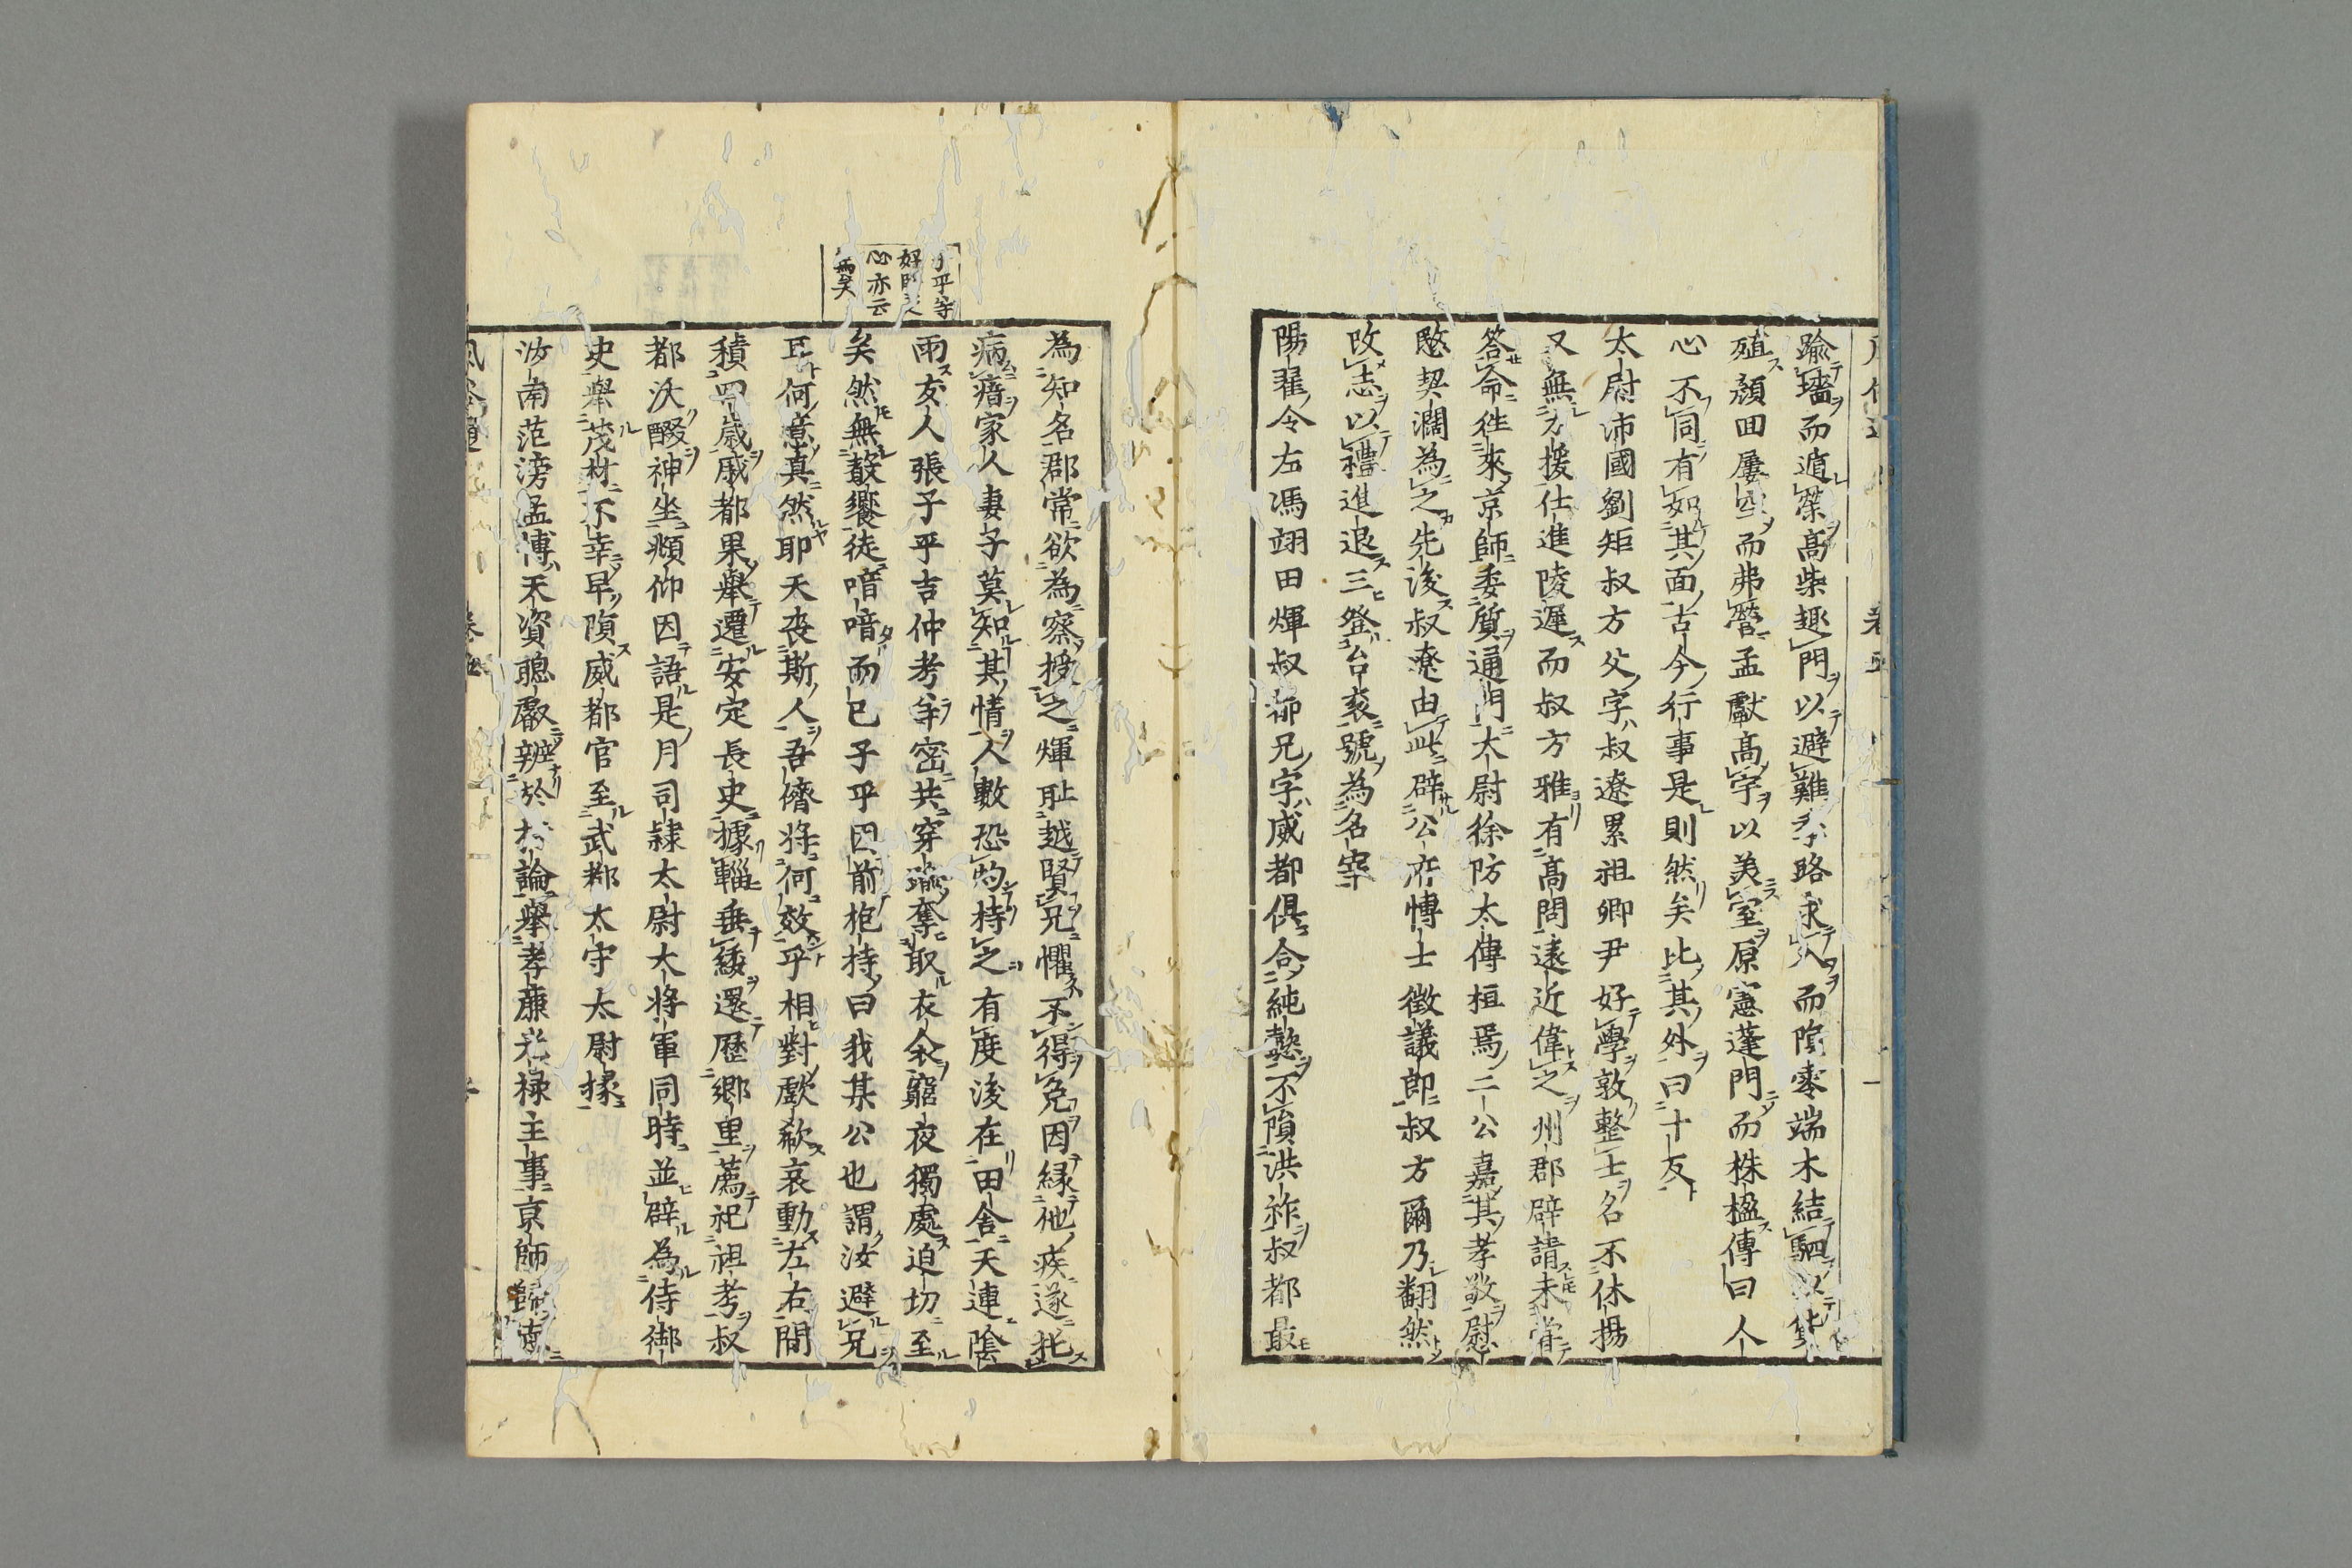 踰墻而遁榮高柴趣門以避難季路求入而隕零端木結駟以貨
殖顔回屢空而弗營孟獻高宇以美室原憲蓬門而株楹傳曰人
心不同有如其面古今行事是則然矣比其外曰十反
太尉沛國劉矩叔方父字叔遼累祖卿尹好學敦整士名不休揚
又無力援仕進陵遲而叔方雅有高問遠近偉之州郡辟請未嘗
答命徃來京師委質通門太尉徐防太傅桓焉二公嘉其孝敬慰
愍契濶為之先後叔遼由此辟公府博士徵議郎叔方爾乃翻然
改志以禮進退三登台衮號為名宰
陽翟令左馮翊田煇叔都兄字威都俱合純懿不隕洪祚叔都最
為知名郡常欲為察授之煇耻越賢兄懼不得免因縁他疾遂託
病瘖家人妻子莫知其情人數恐灼持之有度後在田舍天連陰
雨友人張子平吉仲考等密共穿踰奪取衣衾窮夜獨處迫切至
矣然無聲響徒喑喑而已子平因前抱持曰我某公也謂汝避兄
耳何意真然耶天喪斯人吾儕將何效乎相對歔欷哀動左右間
積四歲威都果舉遷安定長史據輜垂緌還歷鄉里薦祀祖考叔
都沃醊神坐頻仰因語是月司隸太尉大將軍同時並辟為侍御
史舉茂材不幸早隕威都官至武都太守太尉掾
汝南范滂孟博天資聰叡辨於
論舉孝廉光祿主事京師歸